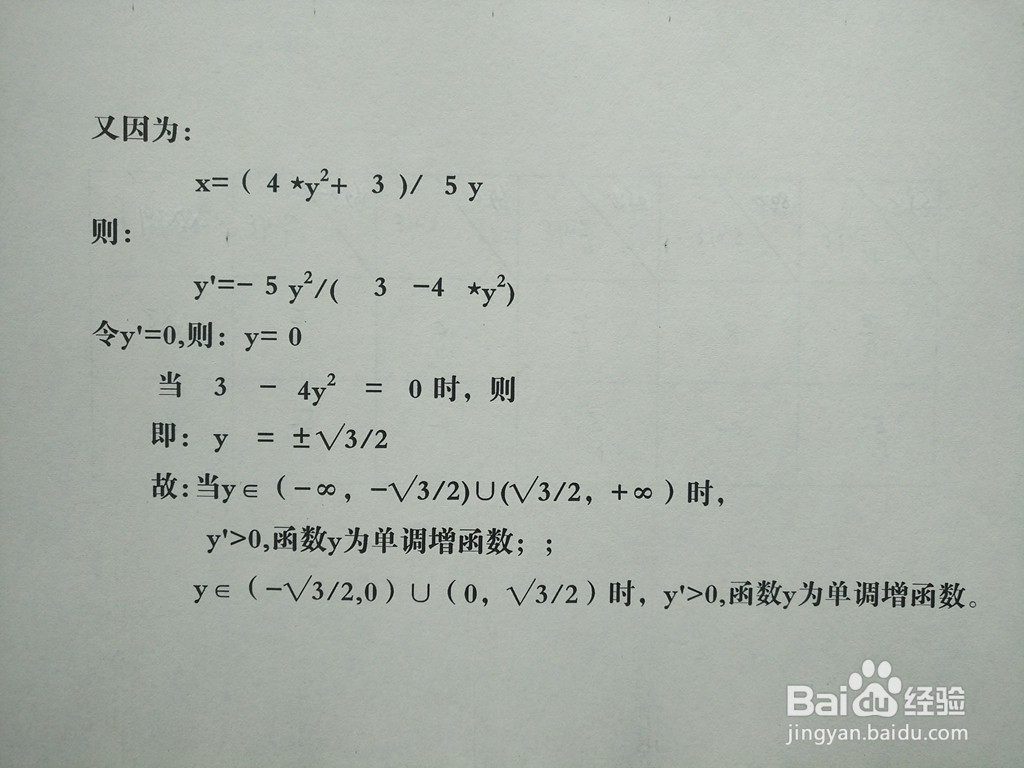 又因为：
x=( 4 ★y²+ 3 )/ 5 y
则：
y'=- 5 y²/( 3 -4 ★y²)
令y'=0,则：y= 0
当 3 - 4y² = 0 时，则
即：y = ±√3/2
故:当y∈（-∞，-√3/2)∪(√3/2，+∞）时，
y'>0,函数y为单调增函数；；
y∈（-√3/2,0）∪（0，√3/2）时，y'>0,函数y为单调增函数。
Bai du 经验
jingyan.baidu.com